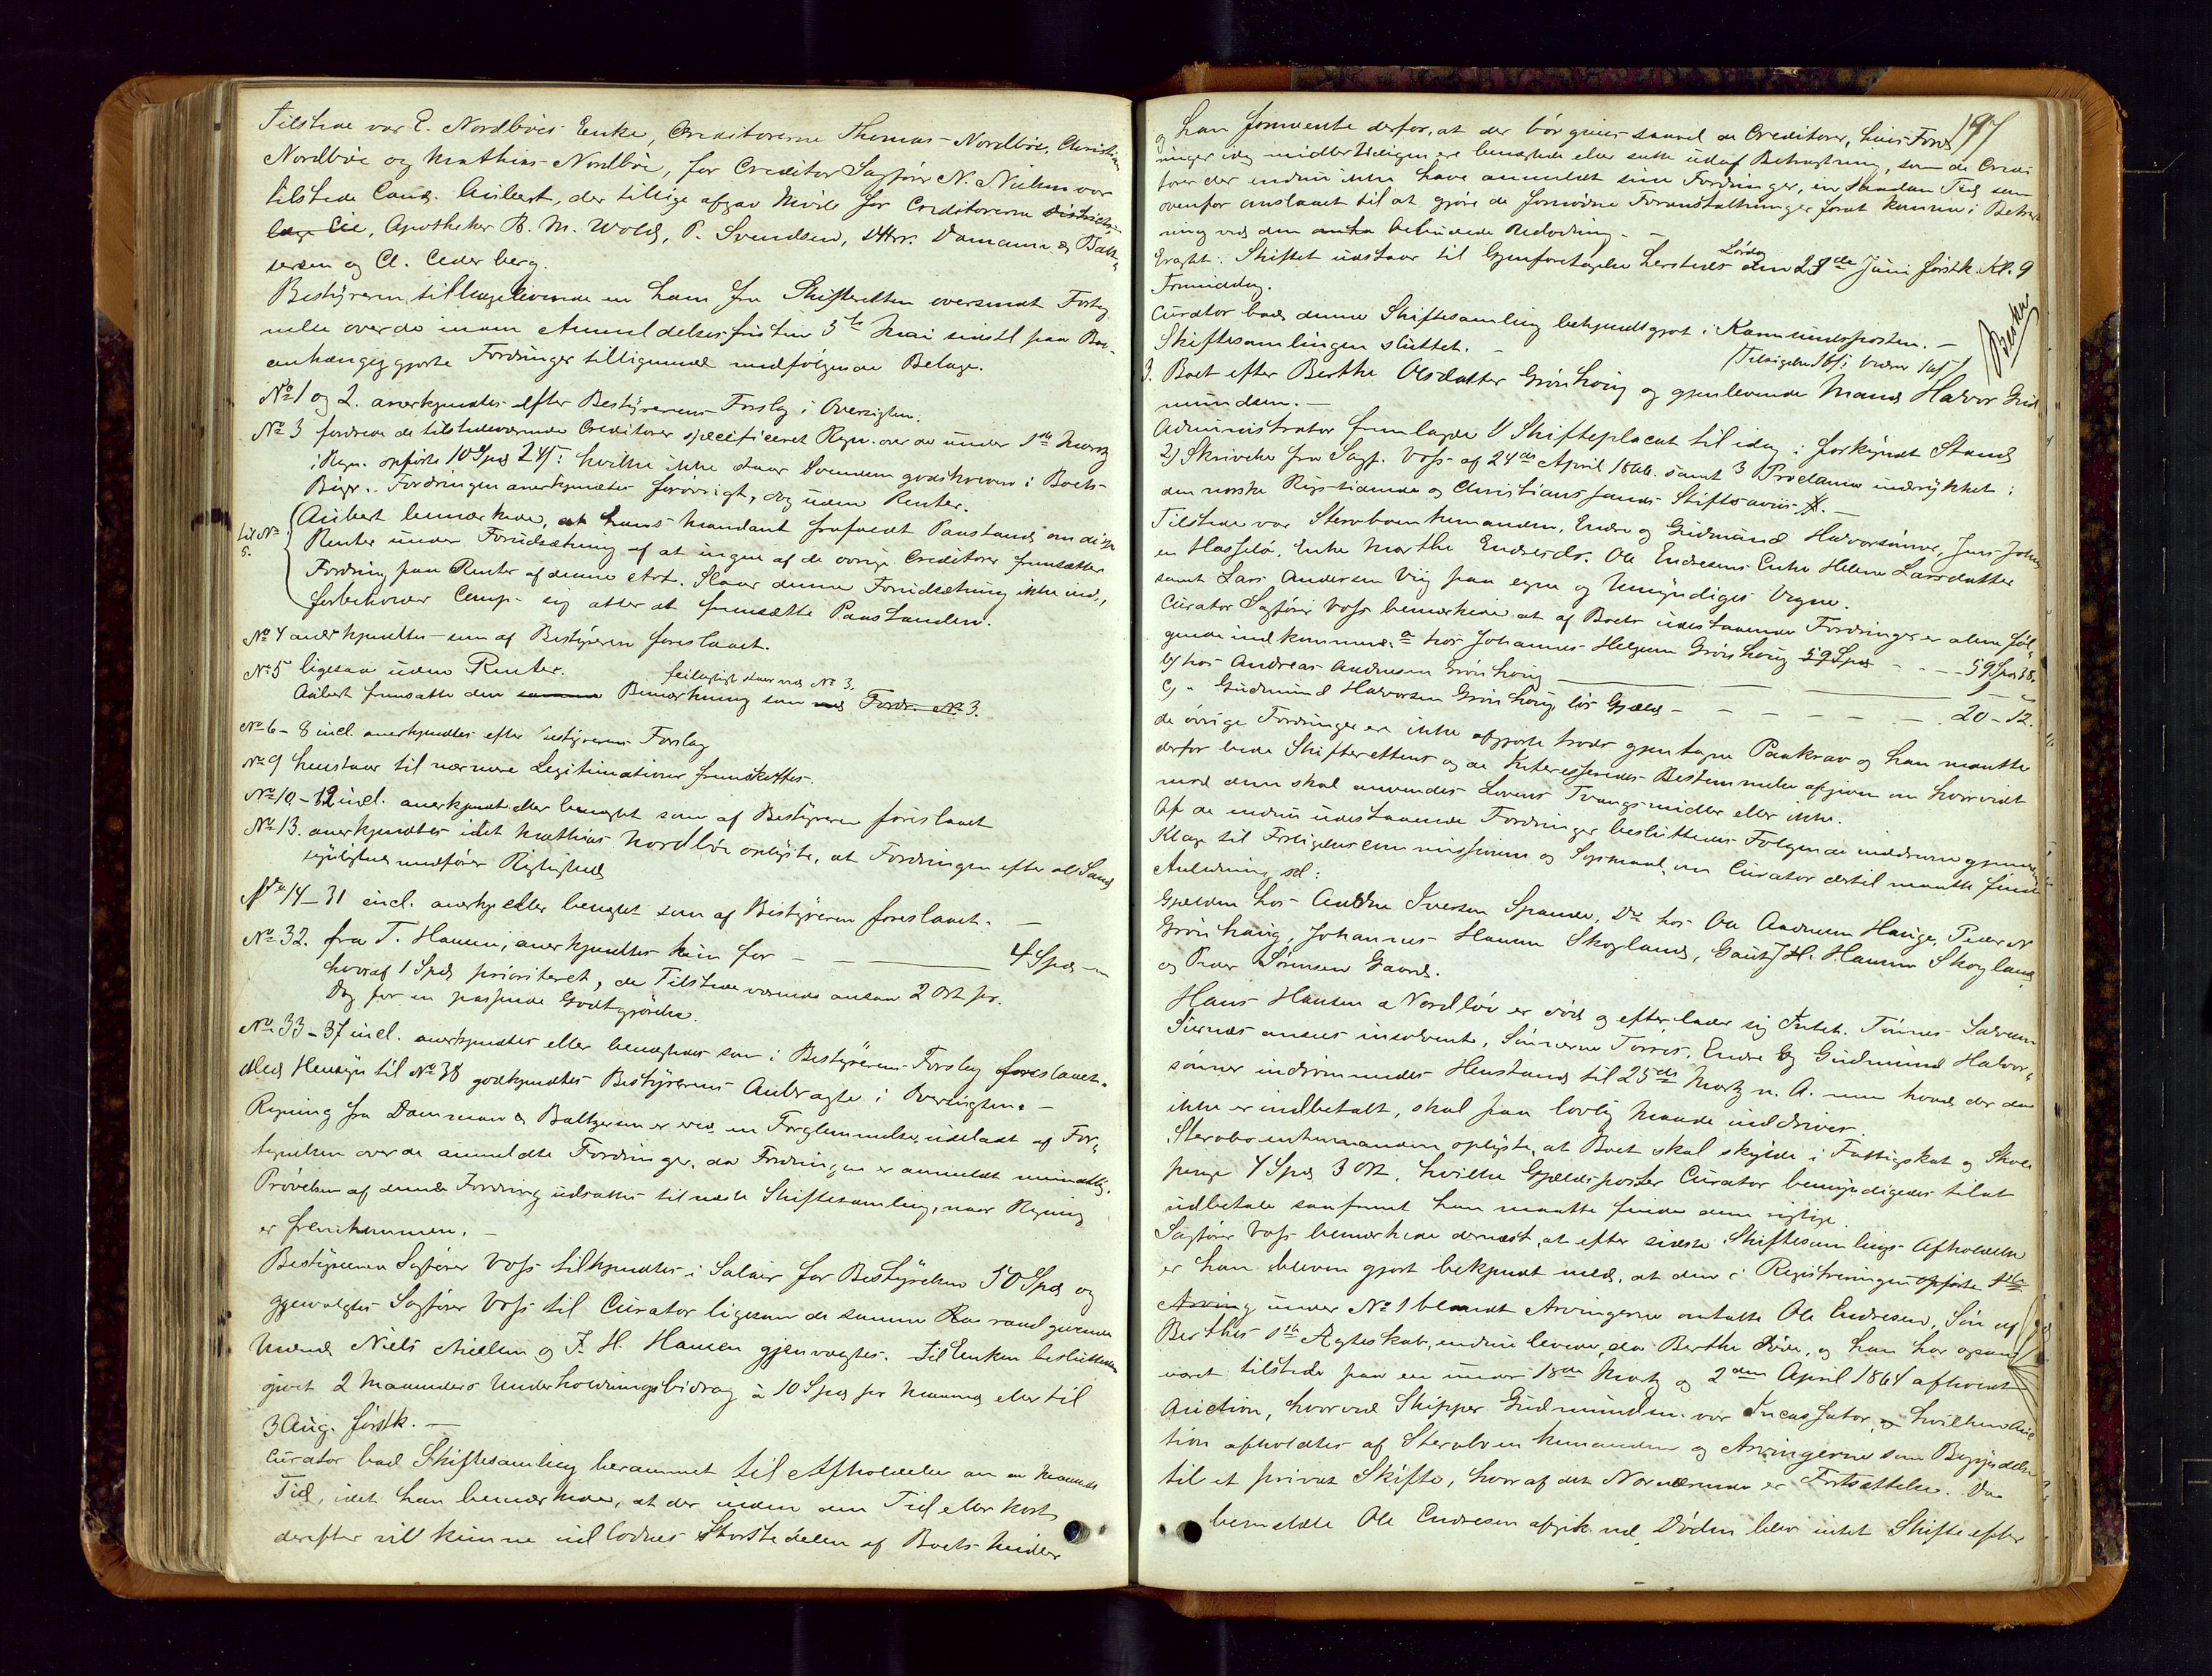 Tilstede var E. Nordbøes Enke, Creditorerne Thomas Nordbøe, Christian
Nordbøe og Mathias Nordbøe, for Creditor Sagfører N. Nielsen var
tilstede Cand. Aubert, der tillige afgav Møde for Creditorerne Districts-
læge Eie, Apotheker B. M. Wold, P. Svendsen, DHrr. Damann & Balt-
sersen og Cl. Cederberg.
Bestyreren tilbageleverede en ham fra Skifteretten oversendt Forteg
nelse over de inden Anmeldelsesfristen 5te Mai sidstl paa Bo-
anhængiggjorte Fordringer tilligemed medfølgende Belage.
No 1 og 2. anerkjendtes efter Bestyrerens Forslag i Oversigten.
No 3 fordrede de tilstedeværende Creditorer specificeret Regn. over de under 1ste Martz
i Regn. opførte 10 Spd 24 s: hvilke ikke staar Svendsen godskreven i Boets
Bøger. Fordringen anerkjendtes forøvrigt, dog uden Renter.
til No 5.
Aubert bemærkede, at hans Mandant frafaldt Paastand om disse
Renter under Forudsætning af at ingen af de øvrige Creditorer fremsætter
Fordring paa Renter af denne Art. Slaar denne Forudsætning ikke ind,
forbeholder Comp. sig atter at fremsætte Paastanden.
No 4 anerkjendtes som af Bestyreren foreslaaet.
No 5 ligesaa uden Renter.
feilagtigt staar ved No 3.
Aubert fremsatte den samme Bemærkning som ved Fordr. No 3.
No 6 - 8 incl. anerkjendtes efter Bestyrerens Forslag
No 9 henstaar til nærmere Legitimationer fremskaffes.
No 10 - 12 incl. anerkjendt eller benægtet som af Bestyreren foreslaaet
No 13. anerkjendtes idet Mathias Nordbøe oplyste, at Fordringen efter al Sand
synlighed medfører Rigtighed
No 14 - 31 incl. anerkj eller benegtet som af Bestyreren foreslaaet. -
No 32. fra T. Hansen, anerkjendtes kun for - - 4 Spd -
hvoraf 1 Spd prioriteret, de Tilstedeværende ansaa 2 Ort pr.
Dag for en passende Godtgjørelse.
No 33 - 37 incl. anerkjendtes eller benegtedes som i Bestyrerens Forslag foreslaaet.
Med Hensyn til No 38 godkjendtes Bestyrerens Anbragte i Oversigten. -
Regning fra Dammann & Baltzersen er ved en Forglemmelse udeladt af For-
tegnelsen over de anmeldte Fordringer, da Fordringen er anmeldt mundtlig.
Prøvelsen af denne Fordring udsattes til næste Skiftesamling, naar Regning
er fremkommen. -
Bestyreren Sagfører Voss tilkjendtes i Salair for Bestyrelsen 50 Spd og
gjenvalgtes Sagfører Voss til Curator ligesom de samme Raadgivende
Mænd Niels Nielsen og J. H. Hansen gjenvalgtes. Til Enken besluttedes
gjort 2 Maaneders Underholdningsbidrag à 10 Spd pr Maaned eller til
3 Aug. førstk. -
Curator bad Skiftesamling berammet til Afholdelse om en Maaneds
Tid, idet han bemærkede, at der inden den Tid eller kort
derefter vil kunne udloddes Størstedelen af Boets Midler
197
og han formente derfor, at der bør gives saavel de Creditorer, hvis Ford
ringer idag midlertidigen ere benægtede eller satte udaf Betragtning, som de Credi
torer der endnu ikke have anmeldt sine Fordringer, en saadan Tid som
ovenfor anslaaet til at gjøre de fornødne Foranstaltninger forat komme i Betragt
ning ved den bebudede Udlodning. -
Eragtet: Skiftet udstaar til Gjenforetagelse hersteds Lørdag den 23de Juni førstk. Kl. 9
Formiddag.
Curator bad denne Skiftesamling bekjendtgjort i Karmsundsposten. -
Skiftesamlingen sluttet. -
3. Boet efter Berthe Olsdatter Grønhoug og gjenlevende Mand Halvor Gud
mundsen. -
Administrator fremlagde 1/ Skifteplacat til idag i forkyndt Stand
2) Skrivelse fra Sagf. Voss af 24de April 1866. samt 3 Proclama indrykket i
den norske Rigstidende og Christianssands Stiftsavis. -
Tilstede var Sterbboenkemanden, Endre og Gudmund Halvorsønner, Jens Johns
en Hasselø, Enke Marthe Endresdr. Ole Endresens Enke Helene Larsdatter
samt Lars Andersen Viig paa egne og Umyndiges Vegne.
Curator Sagfører Voss bemærkede at af Boets udestaaende Fordringer er alene føl-
gende indkommen: a hos Johannes Helgesen Grønhoug 59 Spd - - - 59 Spd 38.
b, hos Andreas Andresen Grønhoug
c, " Gudmund Halvorsen Grønhoug, løs Gjæld - - - - 20 - 12.
de øvrige Fordringer er ikke afgjorte trods gjentagne Paakrav og han maatte
derfor bede Skifterettens og de Interesseredes Bestemmelse afgiven om hvorvidt
mod dem skal anvendes Lovens Tvangsmidler eller ikke.
Af de endnu udestaaende Fordringer besluttedes Følgende inddrevne gjennem
Klage til Forligelsescommissionen og Søgsmaal, om Curator dertil maatte finde
Anledning, sl:
Gjælden hos Andre Iversen Spanne, Do hos Ole Andresen Hauge, Peder N
Grønhaug, Johannes Hansen Skogland, Gaut J H. Hansen Skogland,
og Peder Sørensen Gaard.
Hans Hansen a Nordbøe er død og efterlader sig Intet. Tønnes Salvesen
ansees insolvente, Sønnerne Torris, Endre og Gudmund Halvor-
sønner indrømmedes Henstand til 25de Martz n. A. men hvad der da
ikke er indbetalt, skal paa lovlig Maade inddrives.
Sterbboenkemanden oplyste, at Boet skal skylde i Fattigskat og Skole
penge 4 Spd 3 Ort, hvilke Gjældsposter Curator bemyndigedes til at
udbetale saafremt han maatte finde dem rigtige.
Sagfører Voss bemærkede dernæst, at efter sidste Skiftesamlings Afholdelse
er han bleven gjort bekjendt med, at den i Registreringen opførte
Arving under No 1 blandt Arvingerne omtalte Ole Endresen, Søn af
Berthes 1ste Ægteskab, endnu levede, da Berthe døde, og han har ogsaa
været tilstede paa en under 18de Martz og 2den April 1864 afholdt
Auction, hvorved Skipper Gudmundsen var Incassator, og hvilken Auc
tion afholdtes af Sterbboenkemanden og Arvingerne som Begyndelse
til et privat Skifte, hvoraf det Nærværende er Fortsættelse. Da
bemeldte Ole Endresen afgik ved Døden blev intet Skifte efter